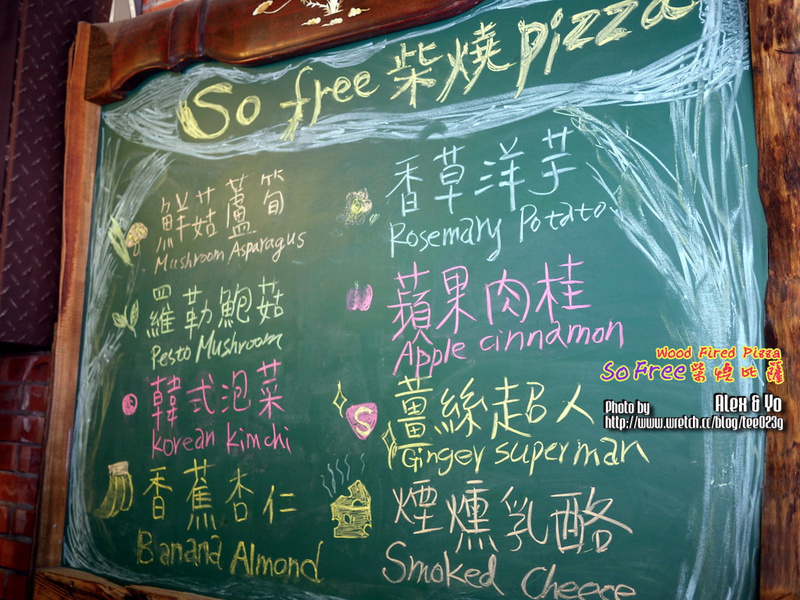 So free 柴燒 pizza
鮮菇蘆筍
Mushroom Asparagus
羅勒鮑菇
Pesto Mushroom
韓式泡菜
korean kimchi
香蕉杏仁
Banana Almond
香草洋芋
Rosemary Potato
蘋果肉桂
Apple cinnamon
S
薑絲超人
Ginger superman
煙燻乳酪
Smoked Cheece
Wood Fired Pizza
So Free 柴燒比薩
Photo by Alex & Yo
http://www.wretch.cc/blog/lee023g